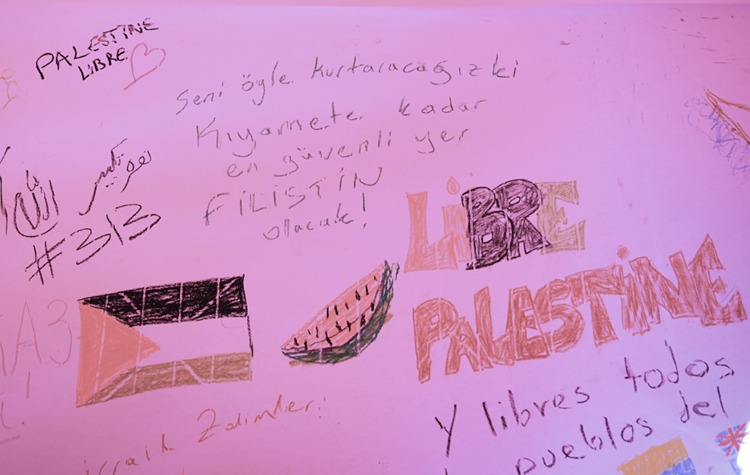 PALESTINE
LIBRE
Seni öyle kurtaracağız ki
Kıyamete kadar
en güvenli yer
FİLİSTİN
olacak!
#313
LiBRE
PALESTiNE
Y libres todos
pueblos del
Zalimler!